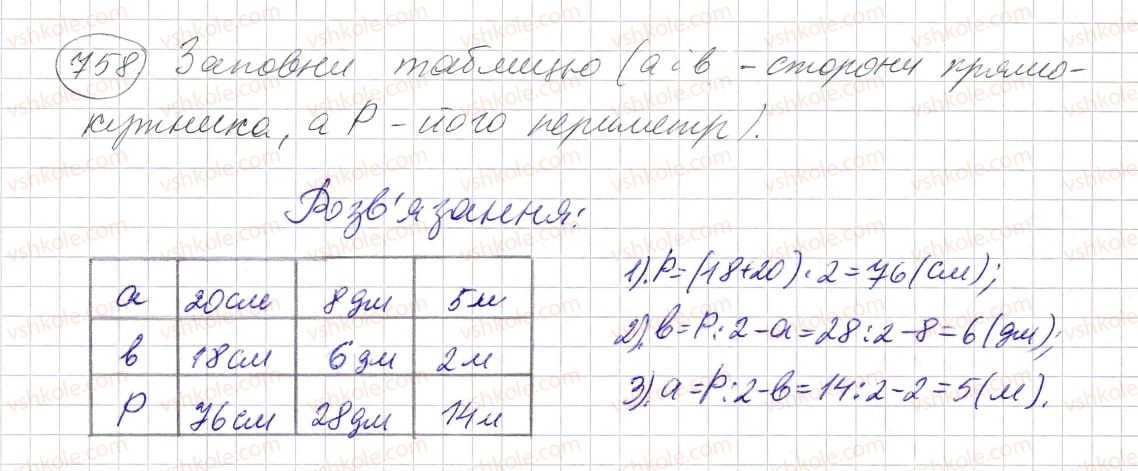 758 Заповни таблицю (a і в - сторони прямо-
кутника, а P - його периметр).
Розв'язання:
a 20см 8дм 5м
в 18см 6дм 2м
P 76см 28дм 14м
1). P=(18+20)·2=76(см);
2). в=P:2-a=28:2-8=6(дм);
3). a=P:2-в=14:2-2=5(м).
vshkole.com